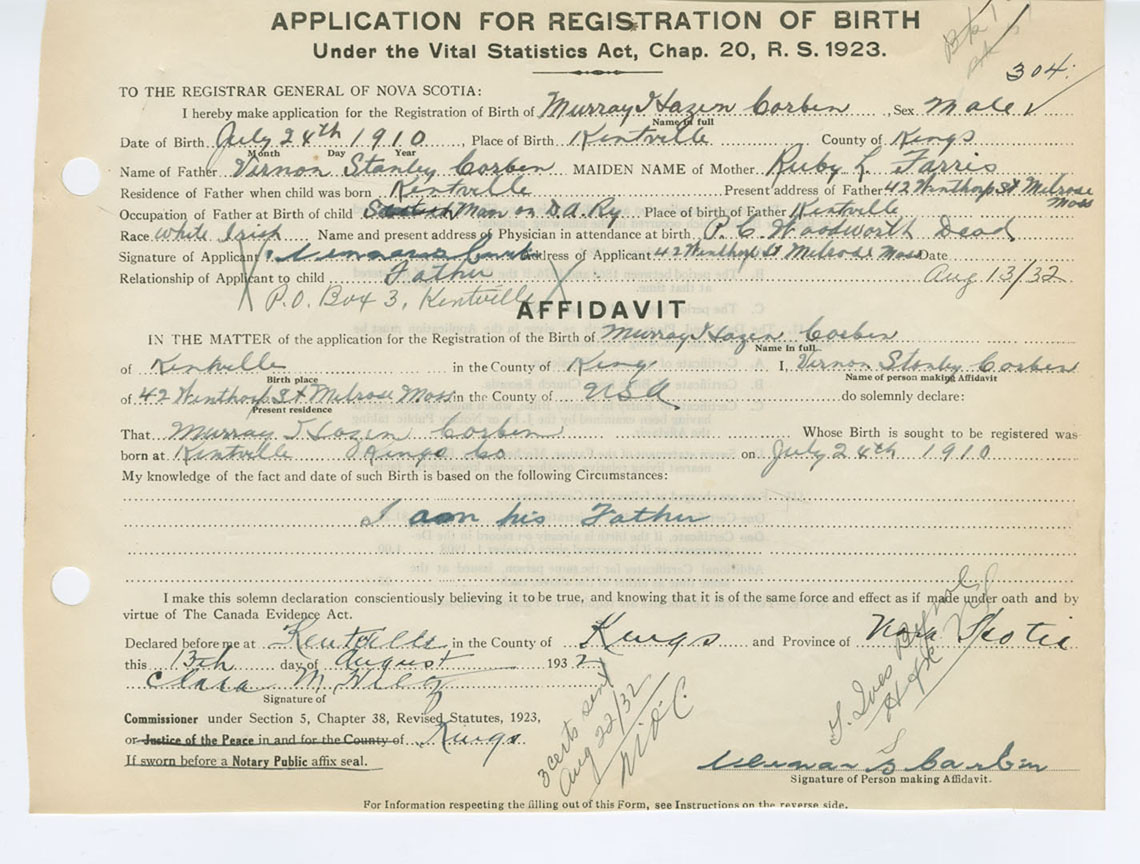 APPLICATION FOR REGISTRATION OF BIRTH
Under the Vital Statistics Act, Chap. 20, R. S. 1923.
304
TO THE REGISTRAR GENERAL OF NOVA SCOTIA:
I hereby make application for the Registration of Birth of Murray Hazen Corben, Sex Male
Name in full
Date of Birth July 24th 1910 Place of Birth Kentville County of Kings
Month Day Year
Name of Father Vernon Stanley Corben MAIDEN NAME of Mother Ruby L. Farris
Residence of Father when child was born Kentville Present address of Father 42 Winthrop St Melrose Mass
Occupation of Father at Birth of child Man on D.A. Ry. Place of birth of Father Kentville
Race White Irish Name and present address of Physician in attendance at birth P. C. Woodworth Dead
Signature of Applicant Address of Applicant 42 Winthrop St Melrose Mass Date Aug 13/32
Relationship of Applicant to child Father
P.O. Box 3, Kentville
AFFIDAVIT
IN THE MATTER of the application for the Registration of the Birth of Murray Hazen Corben
Name in full
of Kentville in the County of Kings I, Vernon Stanley Corben
Birth place Name of person making Affidavit
of 42 Winthrop St Melrose Mass in the County of USA do solemnly declare:
Present residence
That Murray Hazen Corben Whose Birth is sought to be registered was
born at Kentville Kings Co on July 24th 1910
My knowledge of the fact and date of such Birth is based on the following Circumstances:
I am his Father
I make this solemn declaration conscientiously believing it to be true, and knowing that it is of the same force and effect as if made under oath and by
virtue of The Canada Evidence Act.
Declared before me at Kentville in the County of Kings and Province of Nova Scotia
this 13th day of August 1932
Clara M.
Signature of
Commissioner under Section 5, Chapter 38, Revised Statutes, 1923,
or Justice of the Peace in and for the County of Kings
If sworn before a Notary Public affix seal.
3 certs sent
Aug 22/32
Vernon S Corben
Signature of Person making Affidavit.
For Information respecting the filling out of this Form, see Instructions on the reverse side.